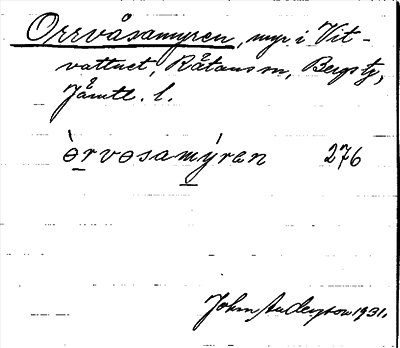 Orrvåsamyren, myr i Vit-
vattnet, Råtans sn, Bergs tg,
Jämtl. l.
òrvosamýren 276
John Andersson 1931.